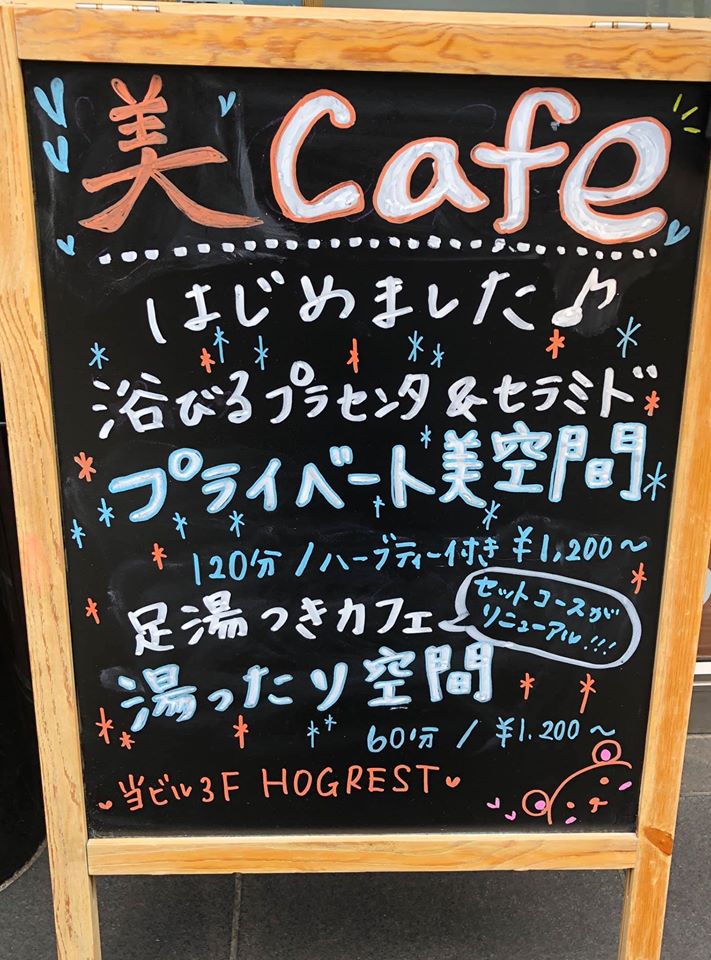 美 Cafe
はじめました♪
浴びるプラセンタ&セラミド
プライベート美空間
120分/ハーブティー付き ¥1,200～
足湯つきカフェ
セットコースが
リニューアル!!!
湯ったり空間
60分 / ¥1.200～
当ビル3F HOGREST